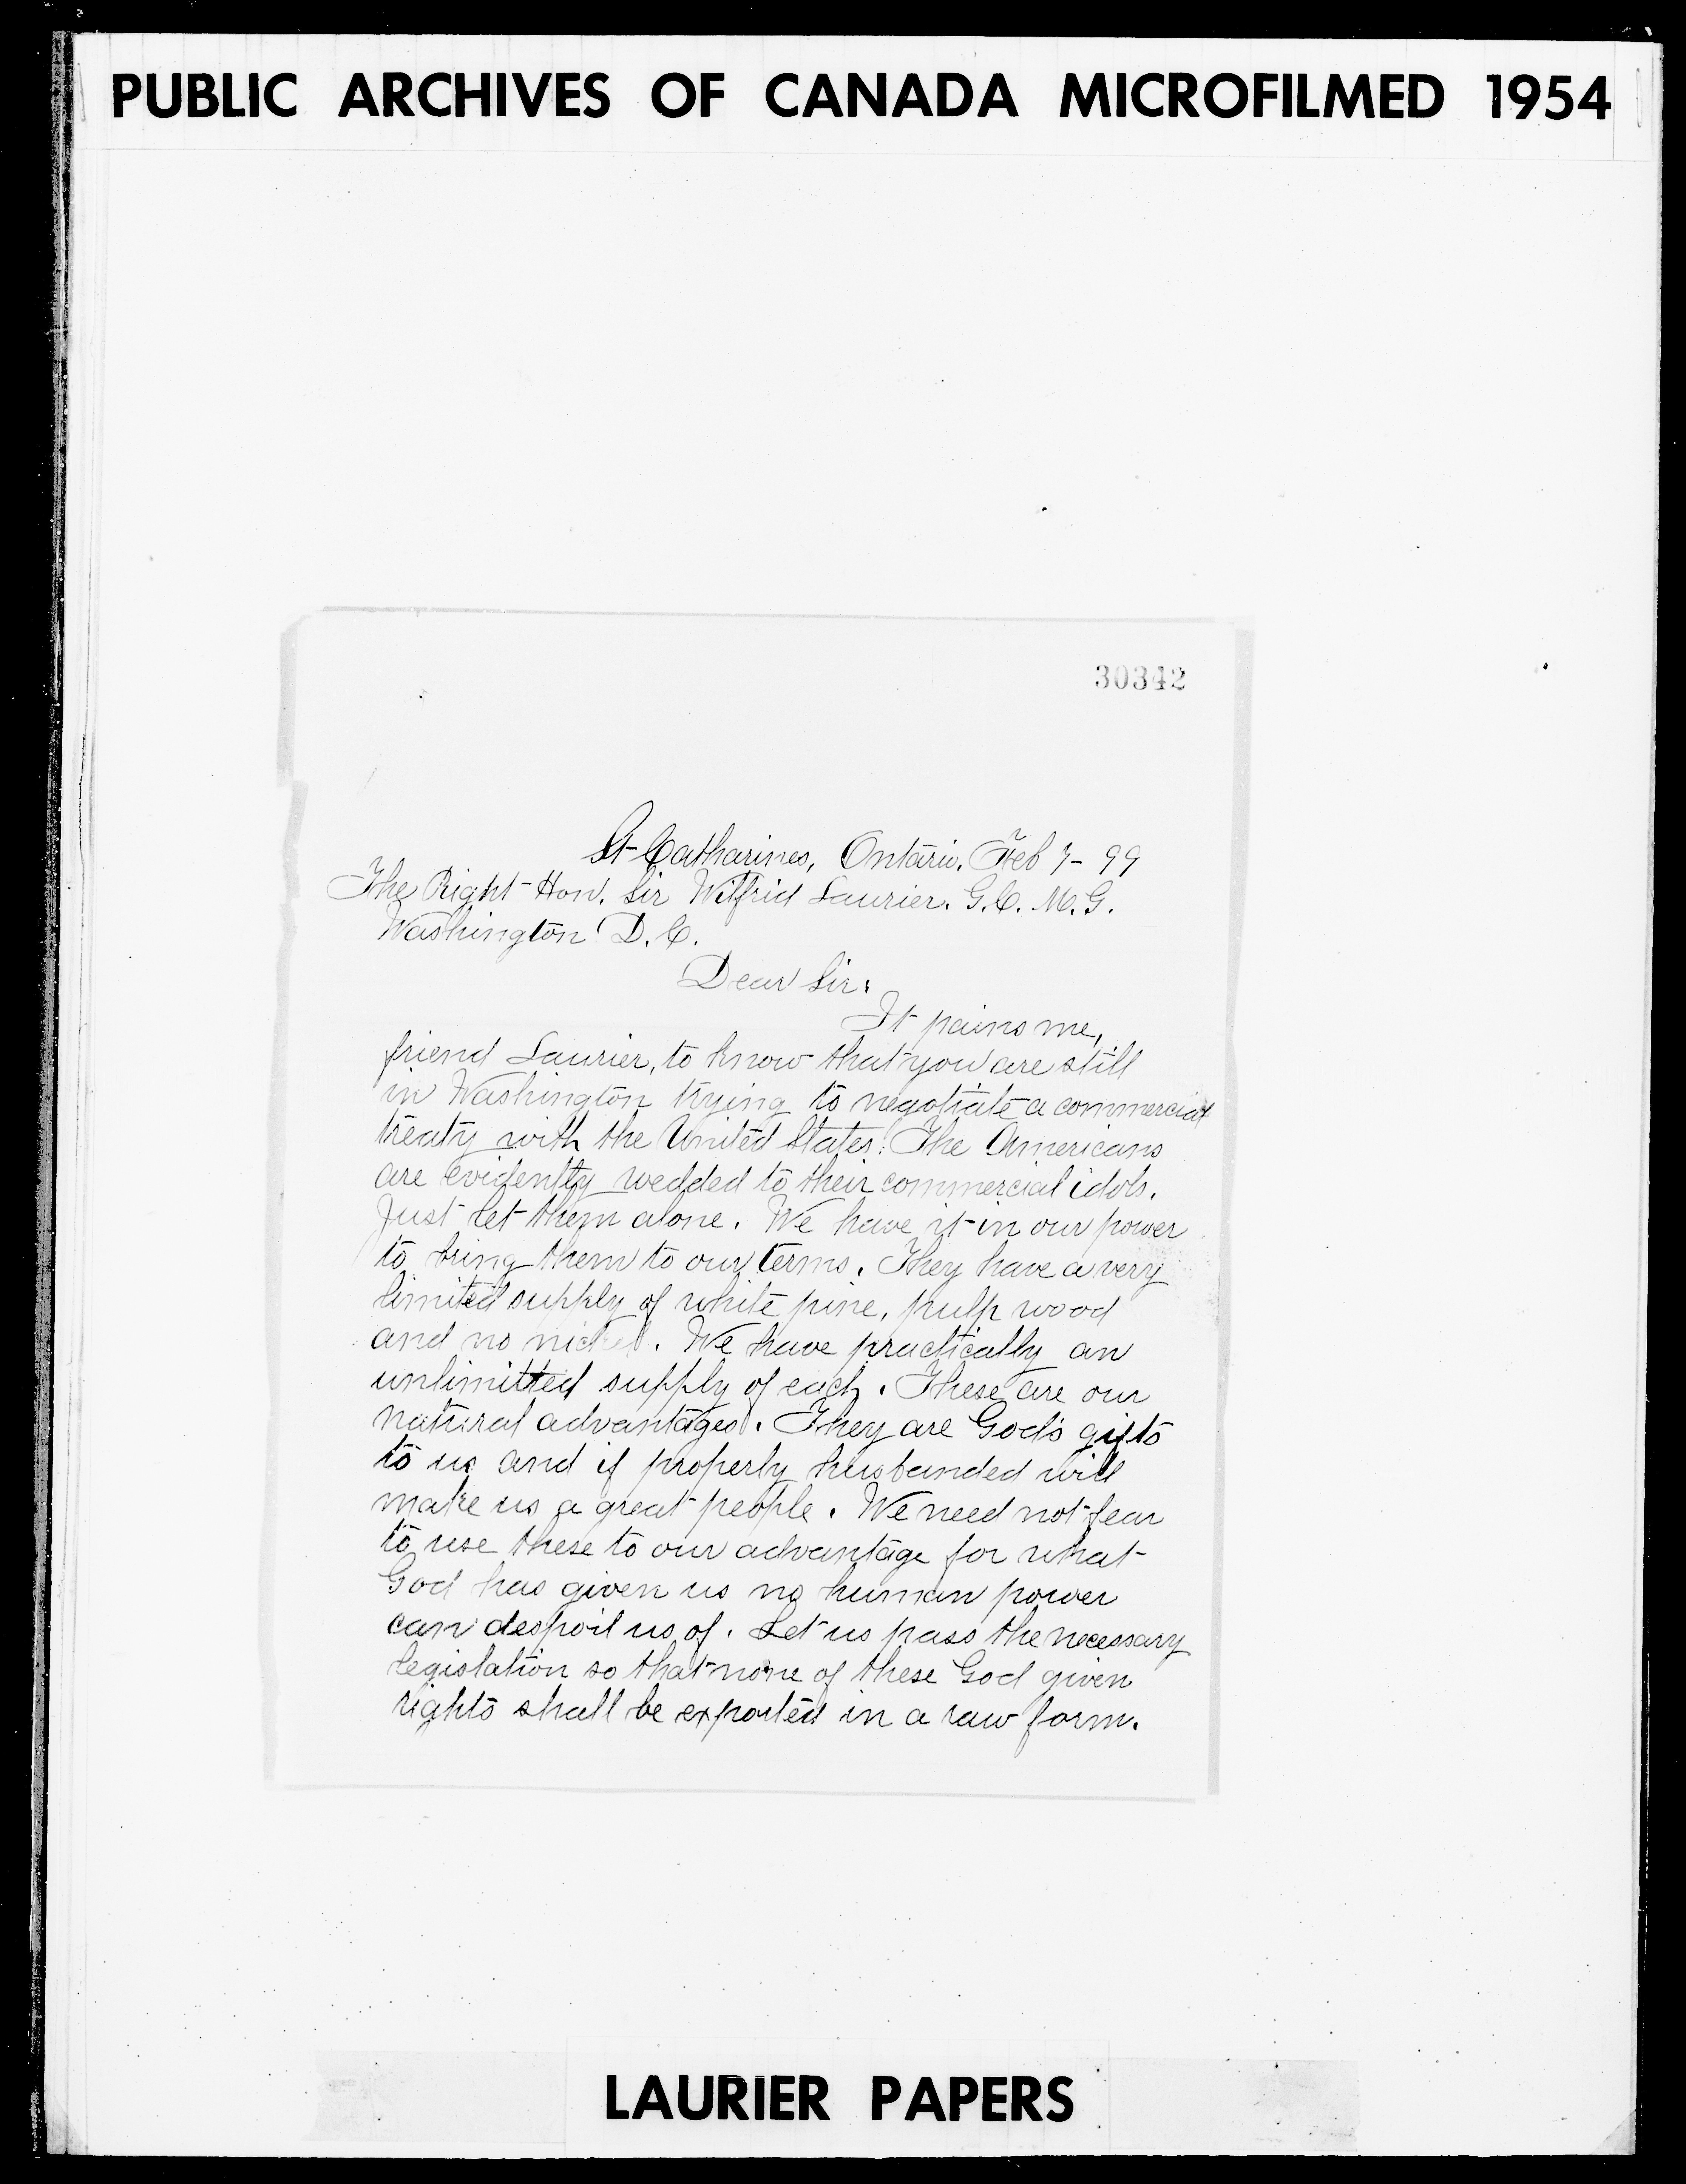 PUBLIC ARCHIVES OF CANADA MICROFILMED 1954
30342
St Catharines, Ontario, Feb 7 - 99
The Right Hon. Sir Wilfrid Laurier. G.C.M.G.
Washington D.C.
Dear Sir:
It pains me,
friend Laurier, to know that you are still
in Washington trying to negotiate a commercial
treaty with the United States. The Americans
are evidently wedded to their commercial idols.
Just let them alone. We have it in our power
to bring them to our terms. They have a very
limited supply of white pine, pulp wood
and no nickel. We have practically an
unlimitted supply of each. These are our
natural advantages. They are God's gifts
to us and if properly husbanded will
make us a great people. We need not fear
to use these to our advantage for what
God has given us no human power
can despoil us of. Let us pass the necessary
legislation so that none of these God given
rights shall be exported in a raw form.
LAURIER PAPERS